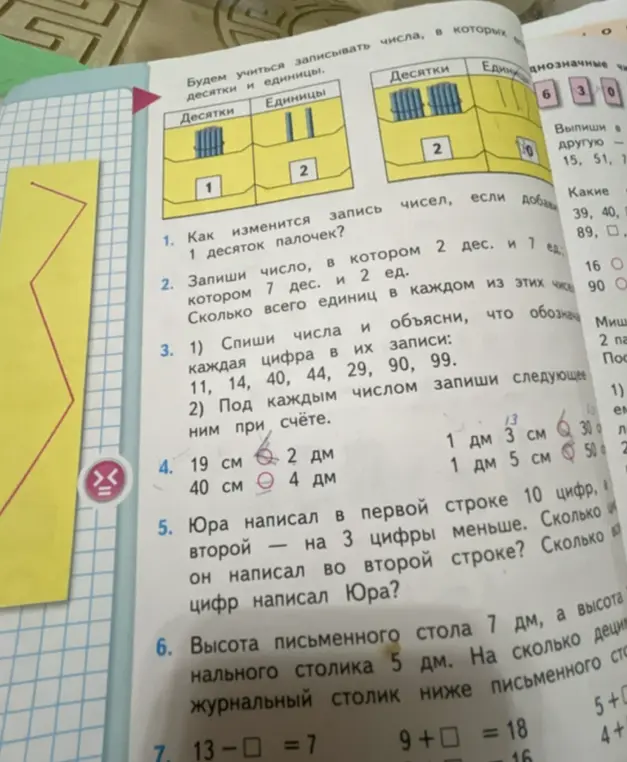 Будем учиться записывать числа, в которых
десятки и единицы.
Десятки Единицы
1 2
Десятки
2 0
1. Как изменится запись чисел, если
1 десяток палочек?
2. Запиши число, в котором 2 дес. и 7 ед.
котором 7 дес. и 2 ед.
Сколько всего единиц в каждом из этих
3. 1) Спиши числа и объясни, что
каждая цифра в их записи:
11, 14, 40, 44, 29, 90, 99.
2) Под каждым числом запиши
ним при счёте.
13
4. 19 см 2 дм 1 дм 3 см 30
40 см 4 дм 1 дм 5 см 50
5. Юра написал в первой строке 10 цифр,
второй — на 3 цифры меньше. Сколько
он написал во второй строке? Сколько
цифр написал Юра?
6. Высота письменного стола 7 дм, а высота
нального столика 5 дм. На сколько
журнальный столик ниже письменного
7. 13 − □ = 7 9 + □ = 18 5 +
16 4 +
6 3 0
Выпиши
другую —
15, 51,
Какие
39, 40,
89, □
16 ○
90 ○
2
1)